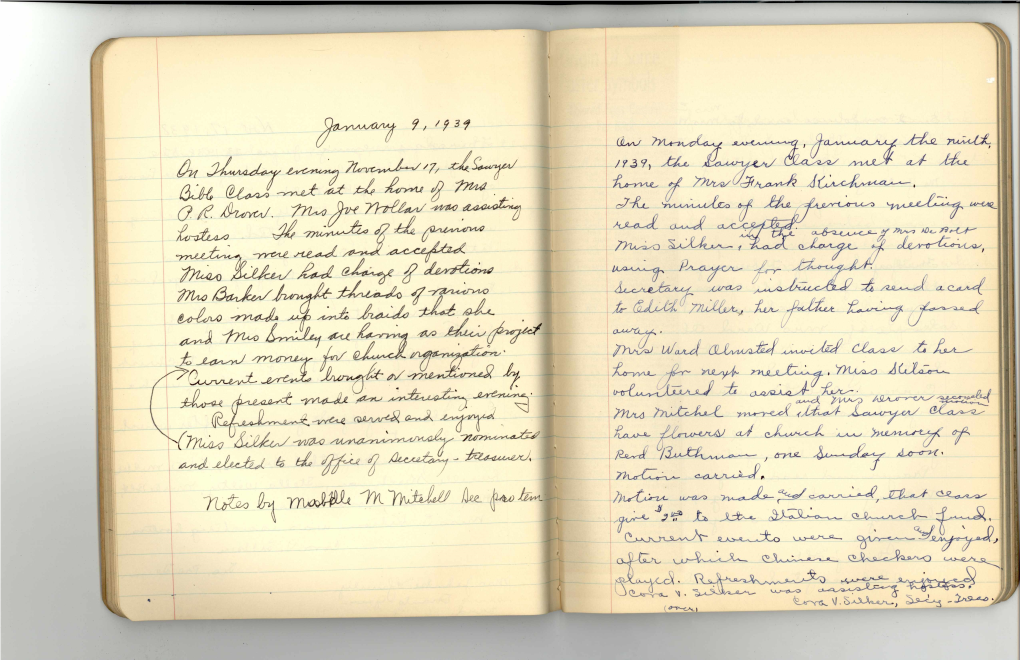 January 9, 1939
On Thursday evening November 17, the Sawyer
Bible Class met at the home of Mrs.
P. R. Drover. Mrs Joe Wollar was assisting
hostess. The minutes of the previous
meeting were read and accepted
Miss Silker had charge of devotions
Mrs Barker brought threads of various
colors made up into braids that she
and Mrs Smiley are having as their project
to earn money for church organization.
Current events brought or mentioned by
those present made an interesting evening.
Refreshment were served and enjoyed
(Miss Silker was unanimously nominated
and elected to the office of Secretary - treasurer.
Notes by M M Mitchell Sec pro tem
On Monday evening, January the ninth,
1939, the Sawyer Class met at the
home of Mrs Frank Kirchman.
The minutes of the previous meeting were
read and accepted.
in the absence of Mrs De Bolt
Miss Silker, had charge of devotions,
using Prayer for thought.
Secretary was instructed to send a card
to Edith Miller, her father having passed
away.
Mrs Ward Olmsted invited class to her
home for next meeting. Miss Stelson
volunteered to assist her.
and Mrs Drover seconded
Mrs Mitchel moved that Sawyer Class
have flowers at church in memory of
Revd Buthman, one Sunday soon.
Motion carried.
Motion was made and carried, that class
give $2.00 to the Italian Church fund.
Current events were given and enjoyed,
after which Chinese checkers were
played. Refreshments were enjoyed
Cora V. Silker was assisting hostess.
Cora V. Silker, Sec'y - Treas.
(over)